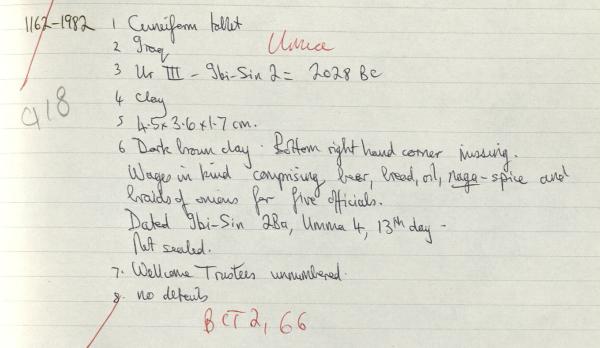 1162-1982 1 Cuneiform tablet
2 Iraq Umma
3 Ur III - Ibi-Sin 2 = 2028 BC
4 Clay
918
5 4.5 x 3.6 x 1.7 cm.
6 Dark brown clay. Bottom right hand corner missing.
Wages in kind comprising beer, bread, oil, naga-spice and
braids of onions for five officials.
Dated Ibi-Sin 2Ba, Umma 4, 13th day -
Not sealed.
7. Wellcome Trustees unnumbered.
8. no details
BCT2, 66